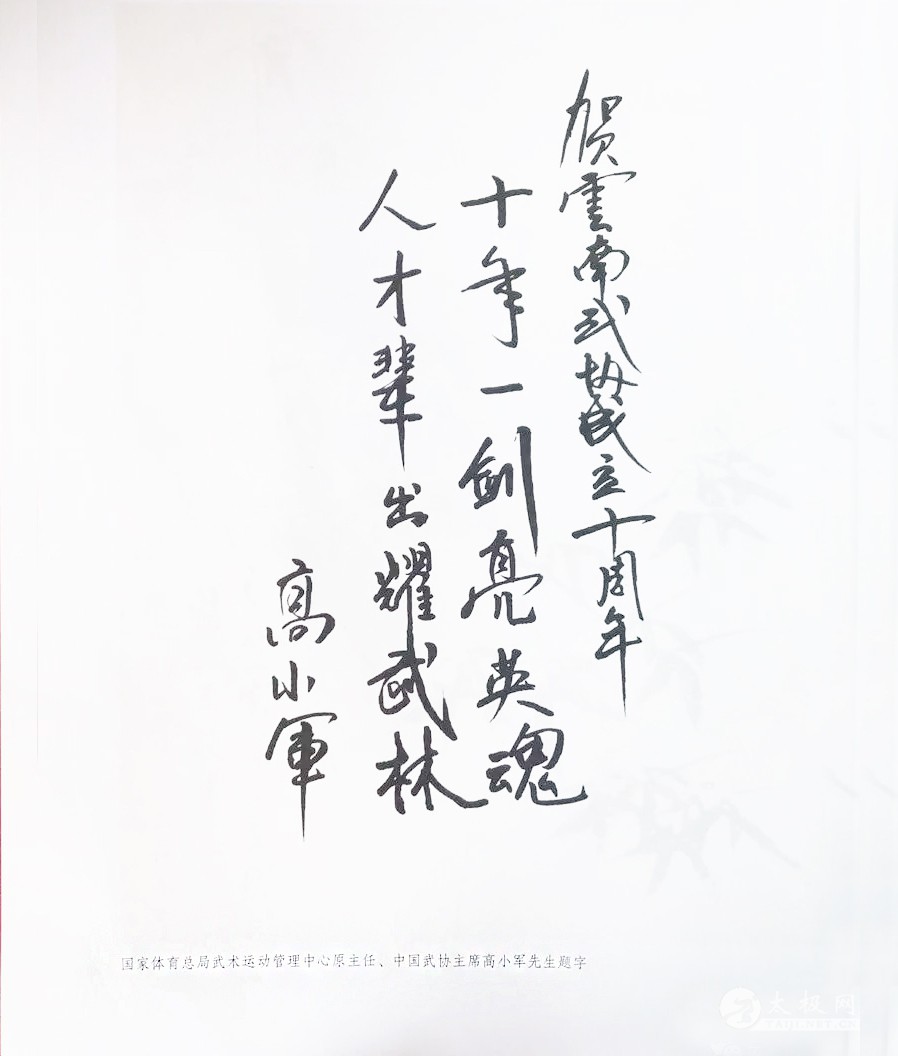 贺雲南武协成立十周年
十年一剑亮英魂
人才辈出耀武林
高小軍
国家体育总局武术运动管理中心原主任、中国武协主席高小军先生题字
太极网
TAIJI.NET.CN